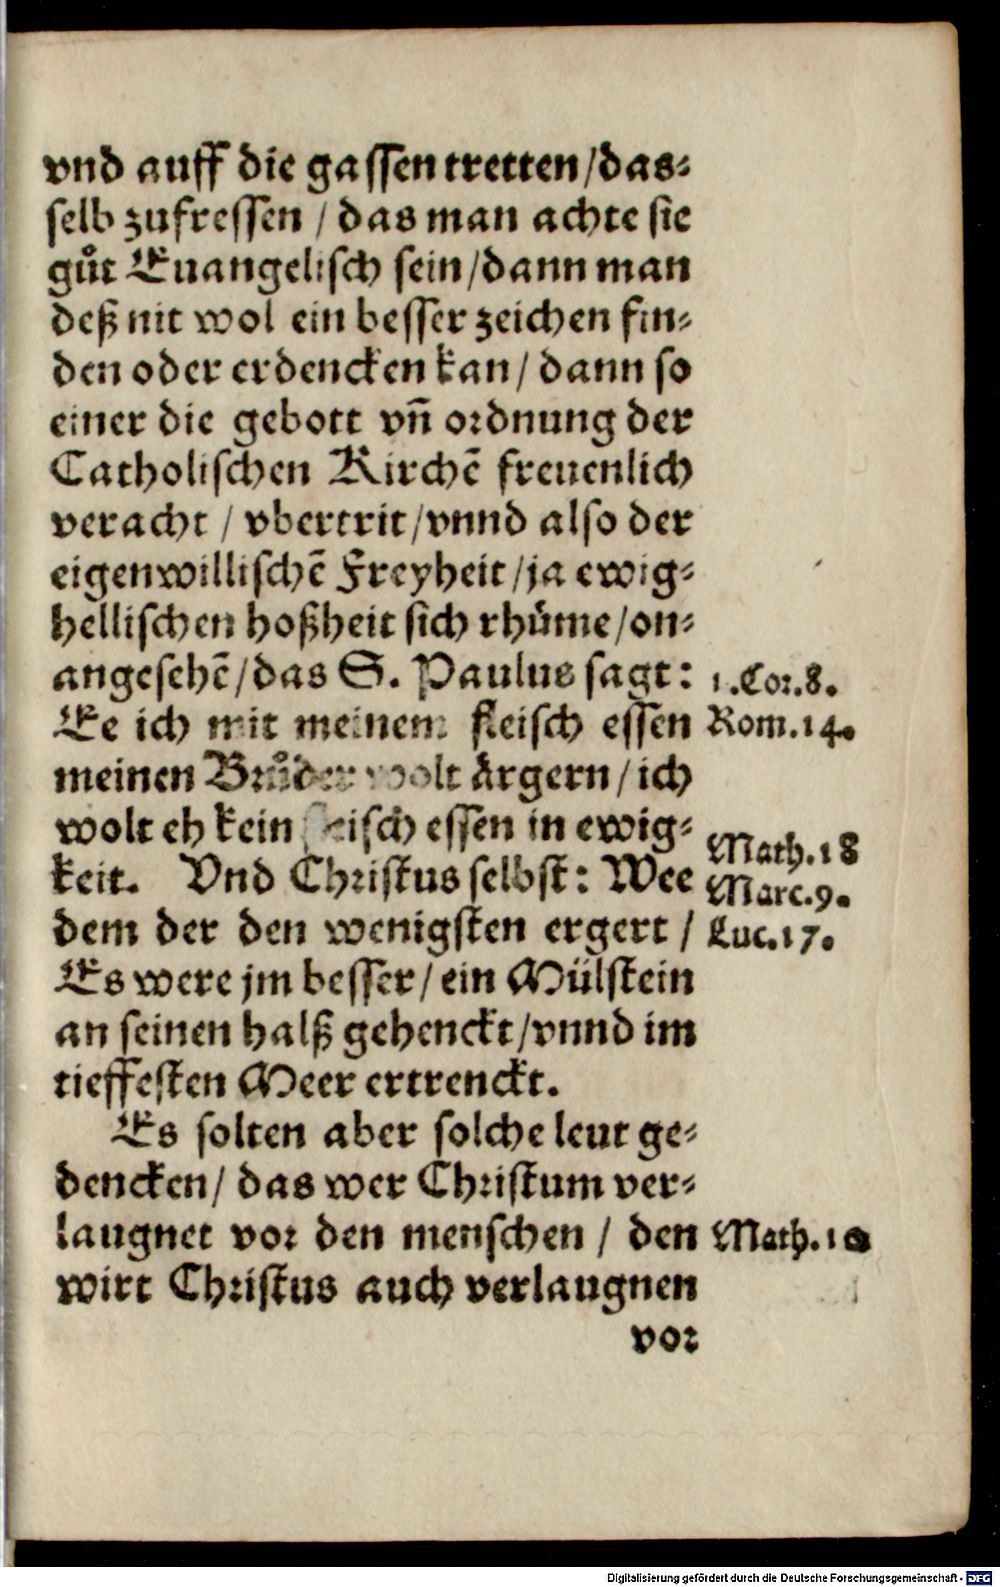 vnd auff die gassen tretten/das⸗
selb zufressen / das man achte sie
gůt Euangelisch sein/dann man
deß nit wol ein besser zeichen fin⸗
den oder erdencken kan/ dann so
einer die gebott vñ ordnung der
Catholischen Kirchẽ freuenlich
veracht / vbertrit/vnnd also der
eigenwillischẽ Freyheit/ja ewig⸗
hellischen hoßheit sich rhůme/on⸗
angesehẽ/das S. Paulus sagt:
1.Cor.8.
Ee ich mit meinem fleisch essen
Rom.14.
meinen Brůder wolt ärgern/ich
wolt eh kein fleisch essen in ewig⸗
Math.18
keit. Vnd Christus selbst: Wee
Marc.9.
dem der den wenigsten ergert /
Luc.17.
Es were jm besser/ein Mülstein
an seinen halß gehenckt/vnnd im
tieffesten Meer ertrenckt.
Es solten aber solche leut ge⸗
dencken/ das wer Christum ver⸗
laugnet vor den menschen / den
Math.10
wirt Christus auch verlaugnen
vor
Digitalisierung gefördert durch die Deutsche Forschungsgemeinschaft - DFG